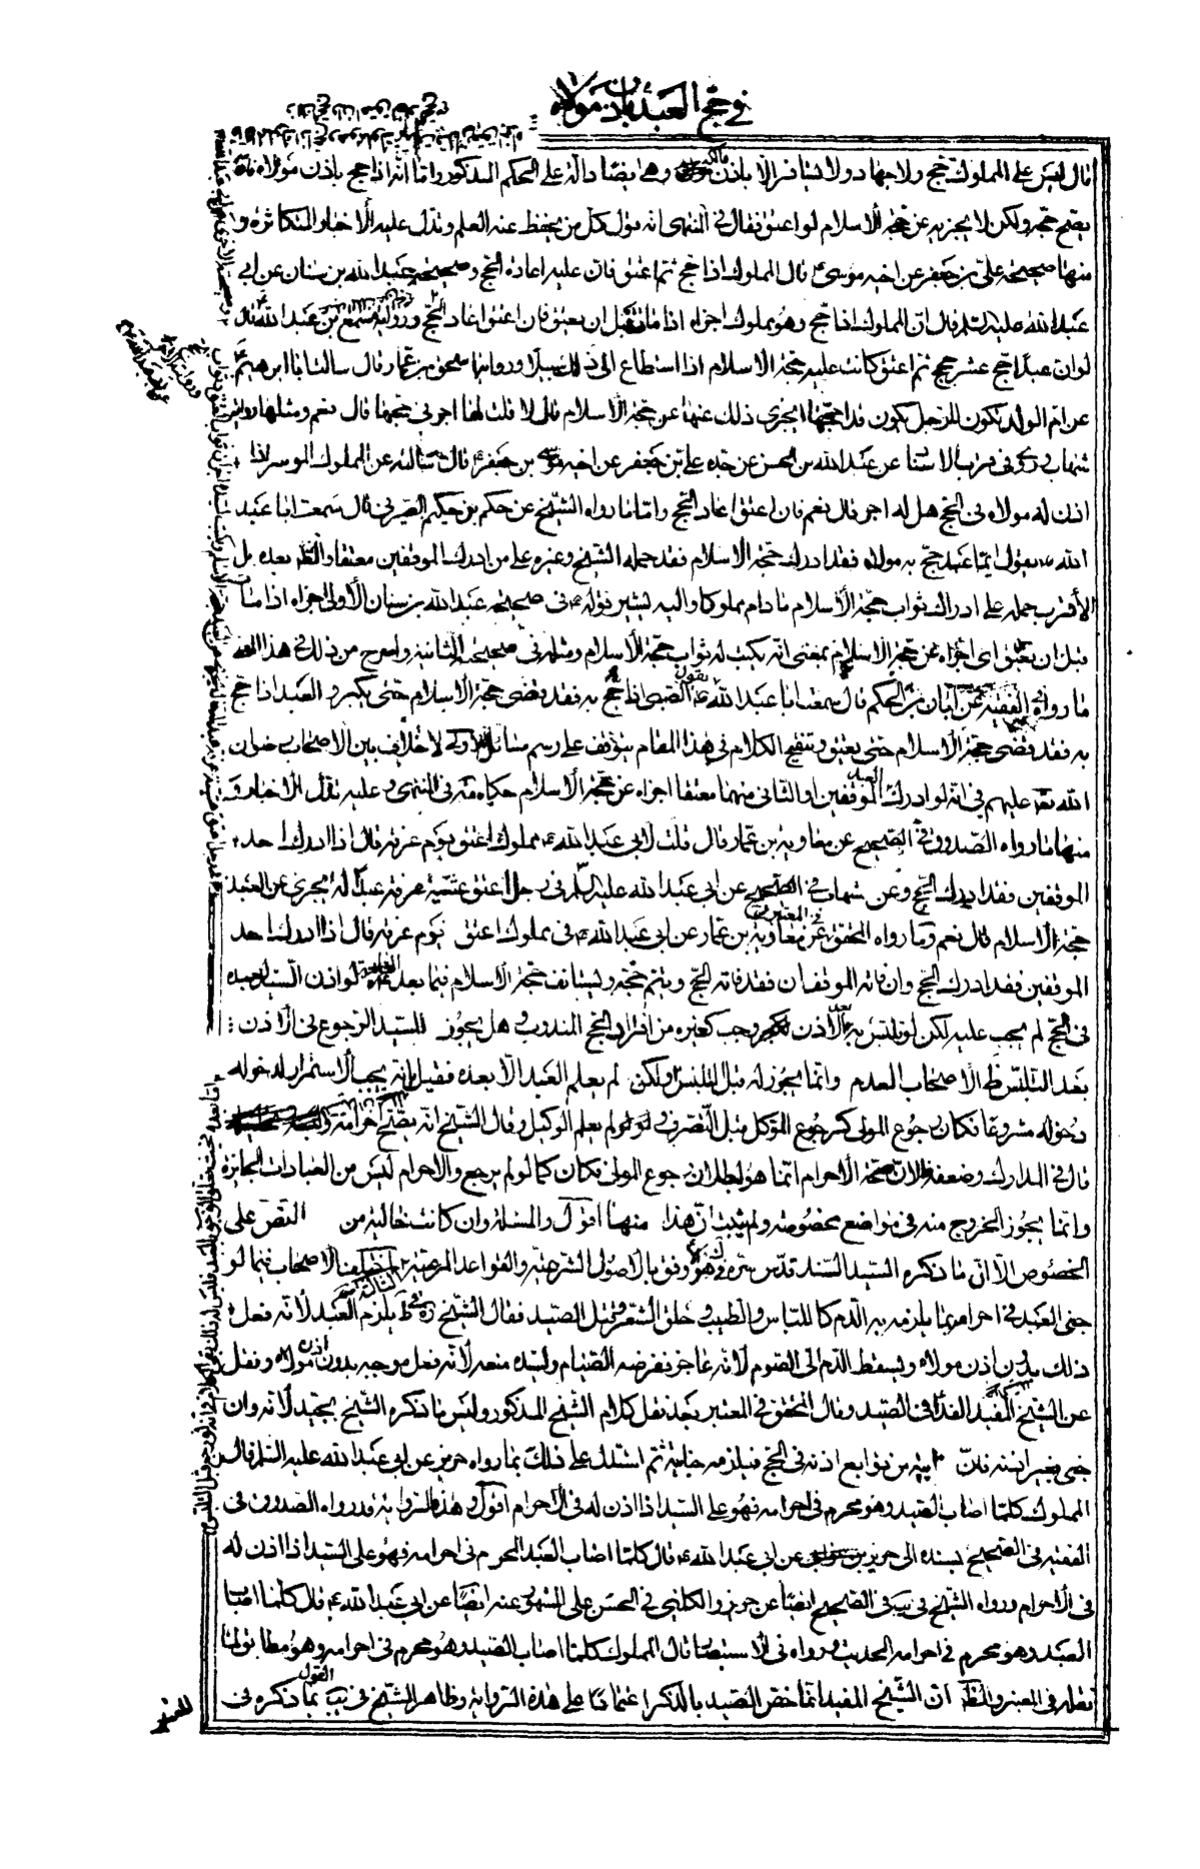 في حج العبد باذن مولاه
قال ليس على المملوك حج ولا جهاد ولا يسافر الا باذن مالكه وهي ايضا دالة على الحكم المذكور واما انه اذا حج باذن مولاه فانه
يصح حجه ولكن لا يجزيه عن حجة الاسلام لو اعتق فقال في المنتهى انه قول كل من يحفظ عنه العلم وتدل عليه الاخبار المتكاثرة و
منها صحيحة علي بن جعفر عن اخيه موسى ع قال المملوك اذا حج ثم اعتق فان عليه اعادة الحج وصحيحة عبد الله بن سنان عن ابي
عبد الله عليه السلم قال ان المملوك اذا حج وهو مملوك اجزاه اذا مات قبل ان يعتق فان اعتق اعاد الحج ورواية مسمع بن عبد الملك قال
لو ان عبدا حج عشر حجج ثم اعتق كانت عليه حجة الاسلام اذا استطاع الى ذلك سبيلا ورواية اسحق بن عمار قال سالت ابا ابرهيم ع
عن ام الولد تكون للرجل يكون قد احجها ايجزي ذلك عنها عن حجة الاسلام قال لا قلت لها اجر في حجتها قال نعم ومثلها رواية
شهاب وروى في قرب الاسناد عن عبد الله بن الحسن عن جده علي بن جعفر عن اخيه موسى بن جعفر ع قال سالته عن المملوك الموسر اذا
اذن له مولاه في الحج هل له اجر قال نعم فان اعتق اعاد الحج واما ما رواه الشيخ عن حكم بن حكيم الصيرفي قال سمعت ابا عبد
الله ع يقول ايما عبد حج به مولاه فقد ادرك حجة الاسلام فقد حمله الشيخ وغيره على من ادرك الموقفين معتقا والظ بعده بل
الاقرب حمله على ادراك ثواب حجة الاسلام ما دام مملوكا واليه يشير قوله ع في صحيحة عبد الله بن سنان الاولى اجزاه اذا مات
قبل ان يعتق اي اجزاه عن حجة الاسلام بمعنى انه يكتب له ثواب حجة الاسلام ومثله في صحيحته الثانية واصرح من ذلك في هذا المعنى
ما رواه في الفقيه عن ابان بن الحكم قال سمعت ابا عبد الله ع يقول الصبي اذا حج به فقد قضى حجة الاسلام حتى يكبر والعبد اذا حج
به فقد قضى حجة الاسلام حتى يعتق وتنقيح الكلام في هذا المقام يتوقف على رسم مسائل الاولى لا خلاف بين الاصحاب رضوان
الله تعه عليهم في انه لو ادرك العبد الموقفين او الثاني منهما معتقا اجزاه عن حجة الاسلام حكاه في المنتهى وعليه تدل الاخبار و
منها ما رواه الصدوق في الصحيح عن معاوية بن عمار قال قلت لابي عبد الله ع مملوك اعتق يوم عرفة قال اذا ادرك احد
الموقفين فقد ادرك الحج وعن شهاب في الصحيح عن ابي عبد الله عليه السلم في رجل اعتق عشية عرفة عبدا له يجزي عن العبد
حجة الاسلام قال نعم وما رواه المحقق في المعتبر عن معاوية بن عمار عن ابي عبد الله ع في مملوك اعتق يوم عرفة قال اذا ادرك احد
الموقفين فقد ادرك الحج وان فاته الموقفان فقد فاته الحج ويتم حجه ويستانف حجة الاسلام فيما بعد الثانية لو اذن السيد لعبده
في الحج لم يجب عليه لكن لو تلبس به بالاذن وجب كغيره من افراد الحج المندوب وهل يجوز للسيد الرجوع في الاذن
بعد التلبس ظ الاصحاب العدم وانما يجوز له قبل التلبس ولكن لم يعلم العبد الا بعده فقيل بانه يجب الاستمرار لدخوله
دخولا مشروعا فكان رجوع المولى كرجوع الموكل قبل التصرف ولو لم يعلم الوكيل وقال الشيخ انه يصح احرامه
قال في المدارك وضعفه ظ لان صحة الاحرام انما هو لبطلان رجوع المولى فكان كما لو لم يرجع والاحرام ليس من العبادات الجائزة
وانما يجوز الخروج منه في مواضع مخصوصة ولم يثبت ان هذا منها اقول والمسئلة وان كانت خالية من النص على
الخصوص الا ان ما ذكره السيد السند قدس سره هو الاوفق بالاصول الشرعية والقواعد المرعية الثالثة اختلف الاصحاب فيما لو
جنى العبد في احرامه بما يلزمه به الدم كاللباس والطيب وحلق الشعر وقتل الصيد فقال الشيخ ره في ط يلزم العبد لانه فعل
ذلك بدون اذن مولاه ويسقط الدم الى الصوم لانه عاجز ففرضه الصيام ولسيده منعه لانه فعل موجبه بدون اذن مولاه ونقل
عن الشيخ المفيد الفداء في الصيد وقال المحقق في المعتبر بعد نقل كلام الشيخ المذكور وليس ما ذكره الشيخ بجيد لانه وان
جنى بغير اذنه فان جنايته من توابع اذنه في الحج فيلزمه جنايته ثم استدل على ذلك بما رواه حريز عن ابي عبد الله عليه السلم قال
المملوك كلما اصاب الصيد وهو محرم في احرامه فهو على السيد اذا اذن له في الاحرام اقول وهذه الرواية قد رواه الصدوق في
الفقيه في الصحيح بسنده الى حريز عن ابي عبد الله ع قال كلما اصاب العبد المحرم في احرامه فهو على السيد اذا اذن له
في الاحرام ورواه الشيخ في يب في الصحيح ايضا عن حريز والكليني في الحسن على المشهور عنه ايضا عن ابي عبد الله ع قال كلما اصاب
العبد وهو محرم في احرامه الحديث ورواه في الاستبصار قال المملوك كلما اصاب الصيد وهو محرم في احرامه وهو مطابق لما
نقله في المعتبر والظ ان الشيخ المفيد انما خص الصيد بالذكر اعتمادا على هذه الرواية وظاهر الشيخ في يب القول بما ذكره في
المعتبر